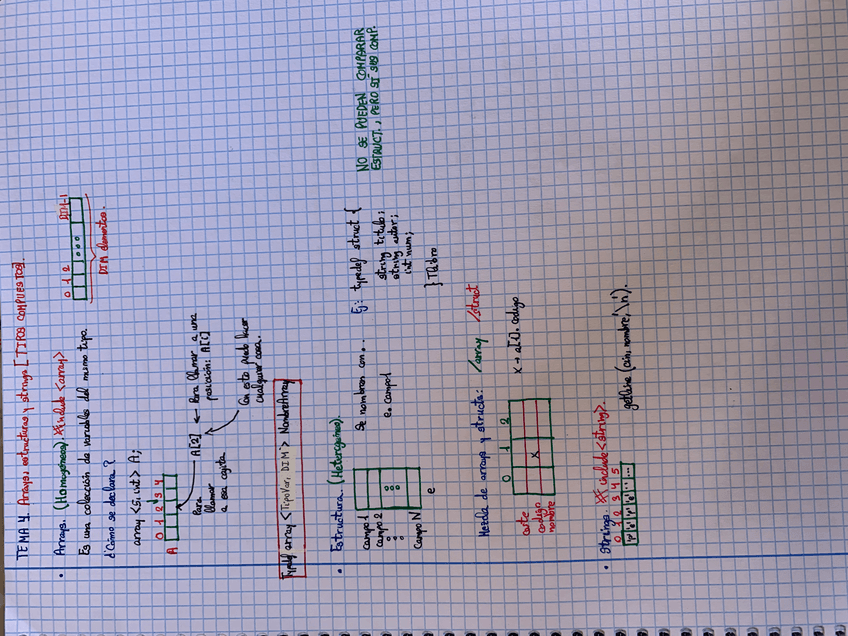 TEMA 4. Arrays, estructuras y strings [TIPOS COMPUESTOS].
• Arrays. (Homogéneos). ** include <array>
Es una colección de variables del mismo tipo
0 1 2 DIM-1
DIM elementos.
¿Cómo se declara?
array <5, int> A;
0 1 2 3 4
A
Para llamar a esa cajita
A[2] ← Para llamar a una posición: A[i]
Con esto puedo hacer cualquier cosa.
Typedef array <TipoVar, DIM> NombreArray
• Estructura. (Heterogéneos).
Campo 1
Campo 2
Campo N
e
Se nombran con...
e.campo1
Ej: typedef struct {
string titulo;
string autor;
int num;
} Tlibro
NO SE PUEDEN COMPARAR
ESTRUCT., PERO SÍ SUS COMP.
Mezcla de arrays y structs: /array /struct
0 1 2
codigo
nombre
x
x = a[1].codigo
• Strings. ** include <string>.
0 1 2 3 4 5
getline (cin, nombre, '\n').